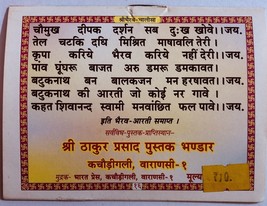 श्रीभैरव-चालीसा
चौमुख दीपक दर्शन सब दुःख खोवे।।जय.
तेल चटकि दधि मिश्रित माषावलि तेरी।
कृपा करिये भैरव करिये नहीं देरी।।जय.
पांव घूंघरू बाजत अरू डमरू डमकावत।
बटुकनाथ बन बालकजन मन हरषावत।।जय.
बटुकनाथ की आरती जो कोई नर गावे।
कहत शिवानन्द स्वामी मनवांछित फल पावे।।जय.
इति भैरव-आरती समाप्त।
सर्वविध-पुस्तक-प्राप्तिस्थान-
श्री ठाकुर प्रसाद पुस्तक भण्डार
कचौड़ीगली, वाराणसी-१
मुद्रक-भारत प्रेस, कचौड़ीगली, वाराणसी-१ मूल्य